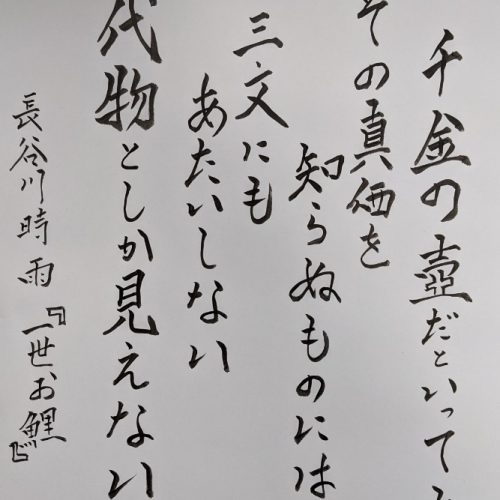 千金の壺だといってみ
その真価を
知らぬものには
三文にも
あたいしない
代物としか見えない
長谷川時雨『一世お鯉』